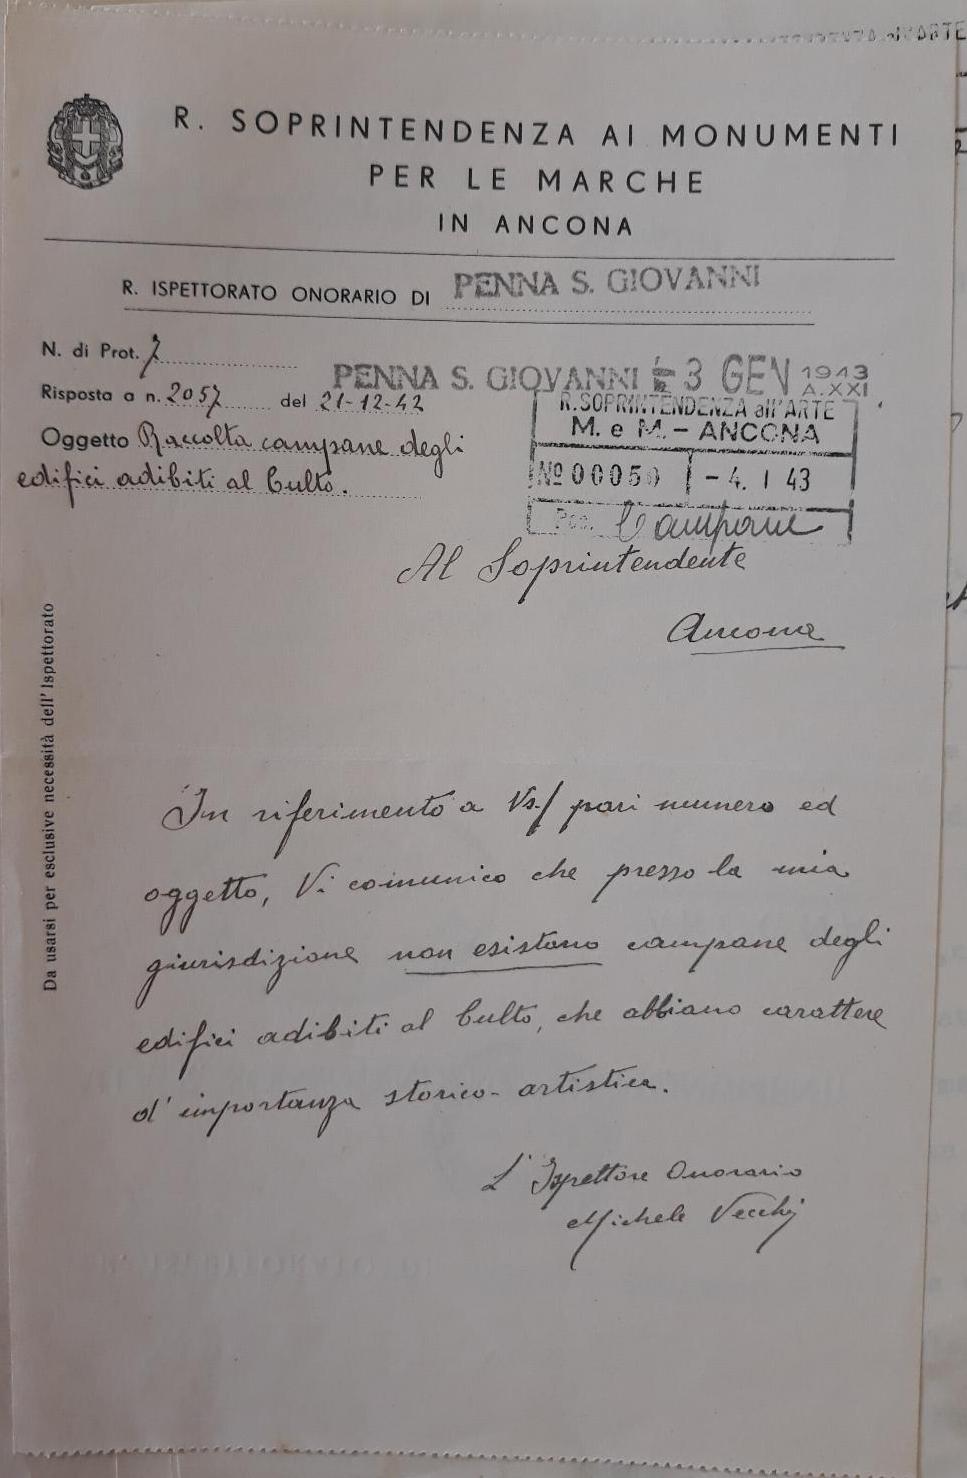 R. SOPRINTENDENZA AI MONUMENTI
PER LE MARCHE
IN ANCONA
R. ISPETTORATO ONORARIO DI PENNA S. GIOVANNI
N. di Prot. 7
PENNA S. GIOVANNI - 3 GEN 1943 A. XXI
Risposta a n. 2057 del 21-12-42
Oggetto Raccolta campane degli
edifici adibiti al Culto.
R. SOPRINTENDENZA all'ARTE
M. e M. - ANCONA
Nº 00050 - 4. I 43
Pos. Campane
Al Soprintendente
Ancona
Da usarsi per esclusive necessità dell'Ispettorato
In riferimento a Vs/ pari numero ed
oggetto, Vi comunico che presso la mia
giurisdizione non esistono campane degli
edifici adibiti al Culto, che abbiano carattere
d'importanza storico-artistica.
L'Ispettore Onorario
Michele Vecchj